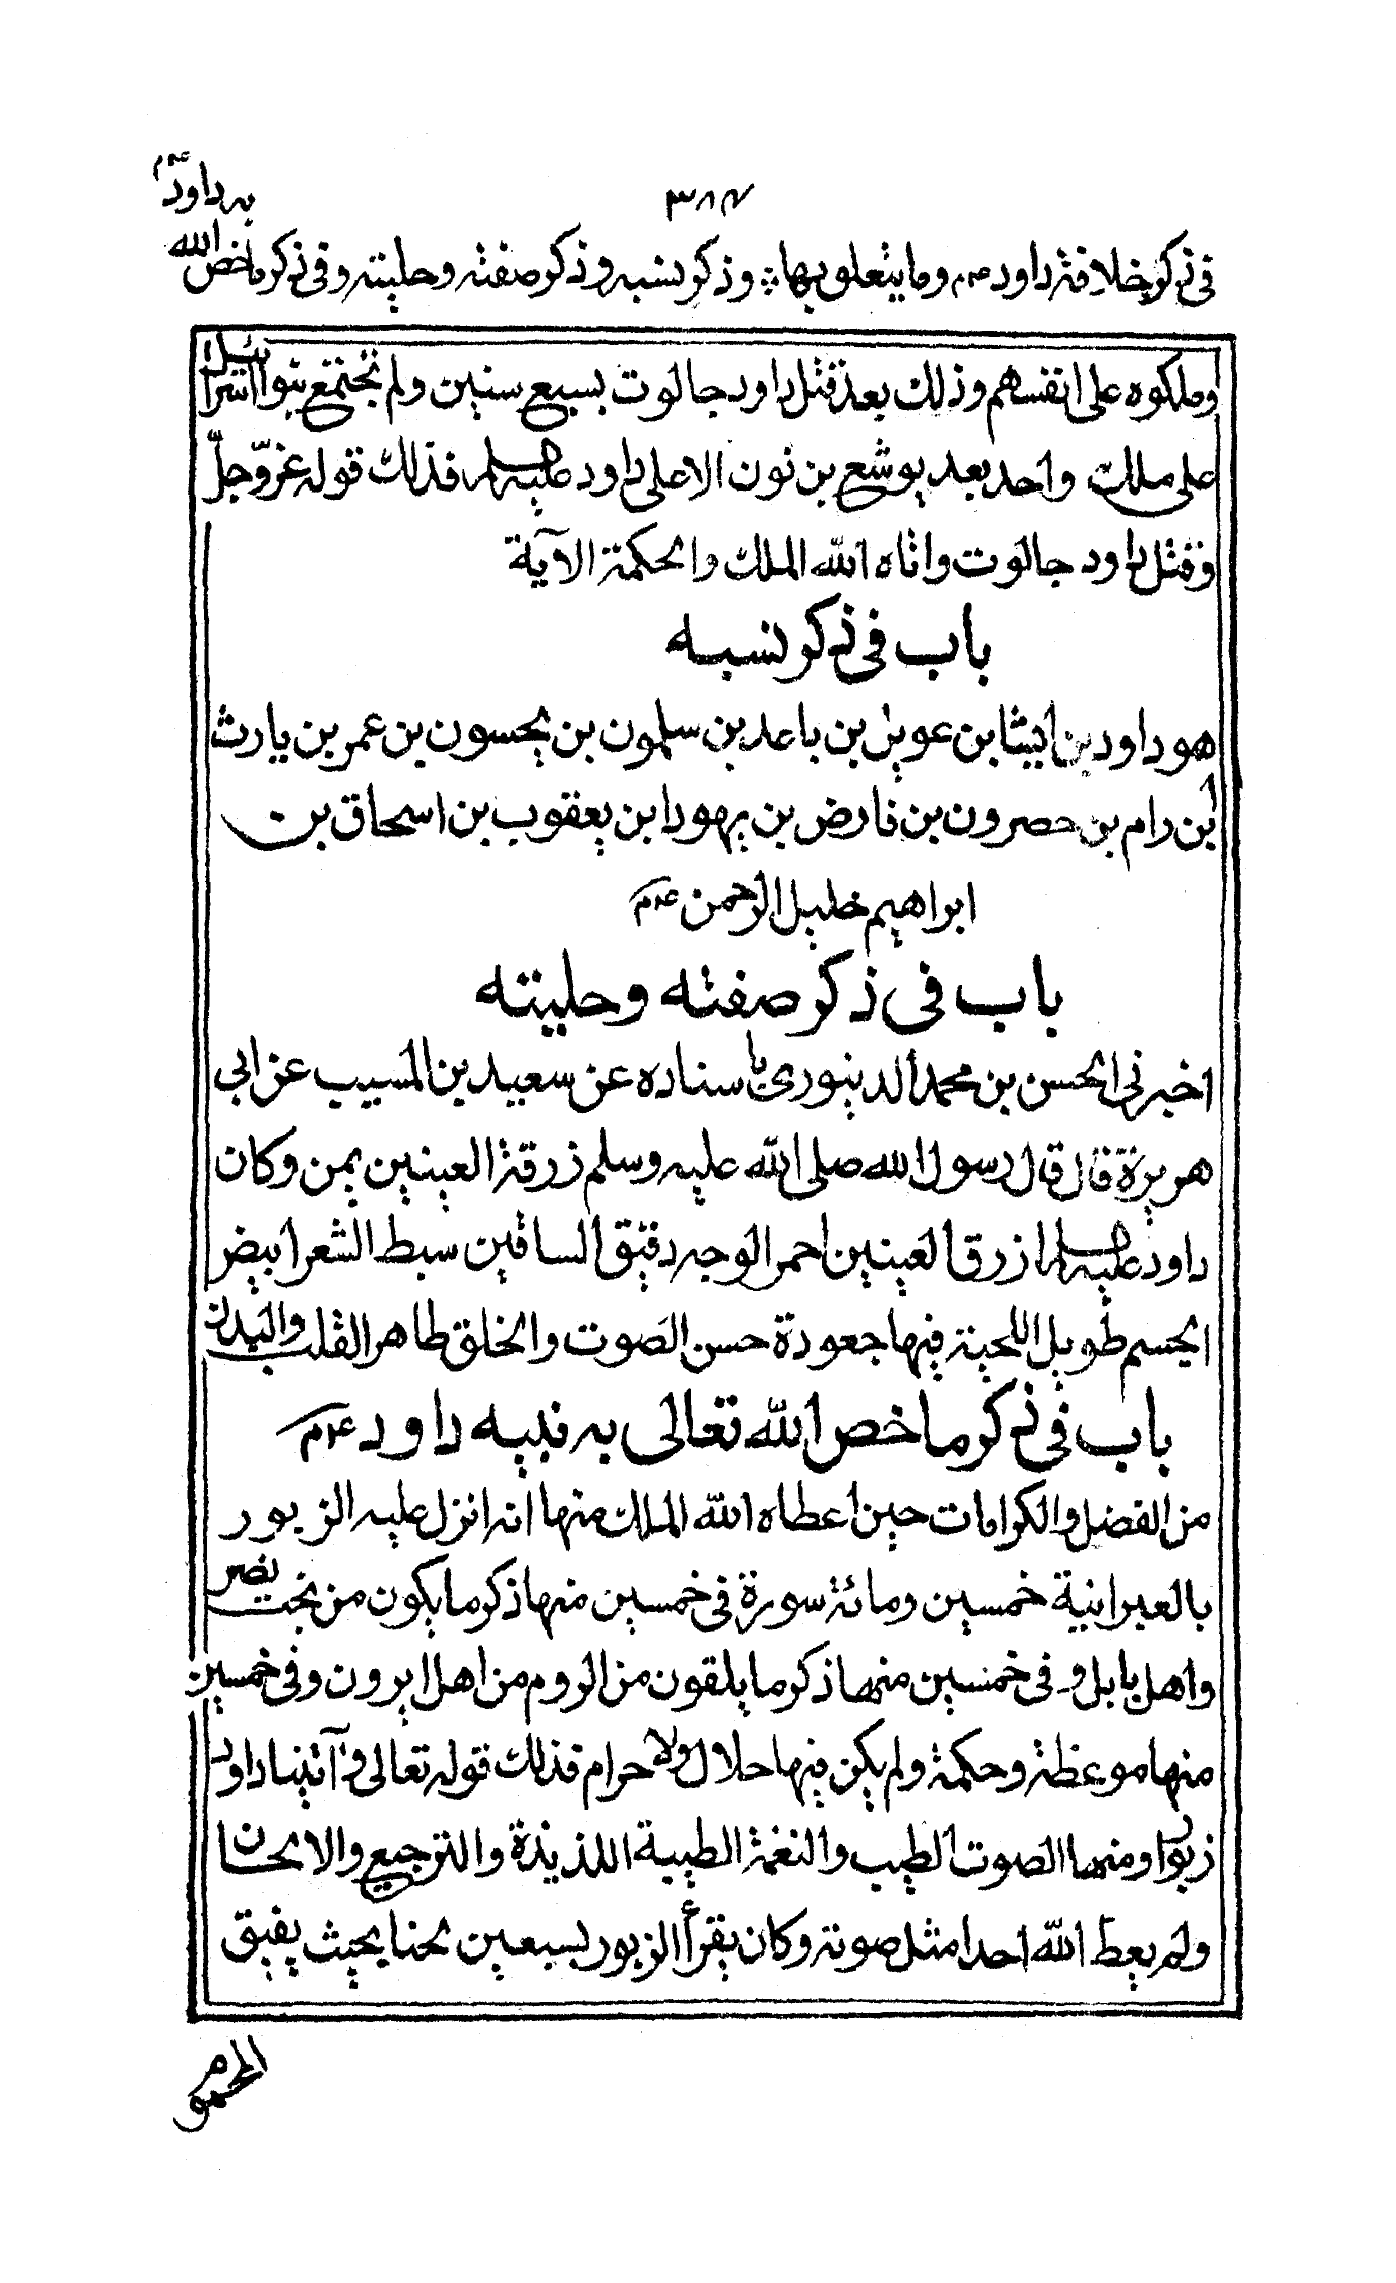 ٣٨٧
في ذكر خلافة داود عم وما يتعلق بها ؞ وذكر نسبه وذكر صفته وحليته وفي ذكر ما خص الله
به داود عم
وملكوه على انفسهم وذلك بعد قتل داود جالوت بسبع سنين ولم تجتمع بنوا اسرائيل
على ملك واحد بعد يوشع بن نون الا على داود عليه السلام فذلك قوله عز وجل
وقتل داود جالوت واتاه الله الملك والحكمة الآية
باب في ذكر نسبه
هو داود بن ايشا بن عويل بن باعد بن سلمون بن يحسون بن عمر بن يارث
ابن رام بن حصرون بن فارض بن يهودا بن يعقوب بن اسحاق بن
ابراهيم خليل الرحمن عم
باب في ذكر صفته وحليته
اخبرني الحسن بن محمد الدينوري باسناده عن سعيد بن المسيب عن ابي
هريرة قال قال رسول الله صلى الله عليه وسلم زرقة العينين يمن وكان
داود عليه السلام ازرق العينين احمر الوجه دقيق الساقين سبط الشعر ابيض
الجسم طويل اللحية فيها جعودة حسن الصوت والخلق طاهر القلب والبدن
باب في ذكر ما خص الله تعالى به نبيه داود عم
من الفضل والكرامات حين اعطاه الله الملك منها انه انزل عليه الزبور
بالعبرانية خمسين ومائة سورة في خمسين منها ذكر ما يكون من بخت نصر
واهل بابل وفي خمسين منها ذكر ما يلقون من الروم من اهل ايرون وفي خمسين
منها موعظة وحكمة ولم يكن فيها حلال ولا حرام فذلك قوله تعالى وآتينا داود
زبورا ومنها الصوت الطيب والنغمة الطيبة اللذيذة والترجيع والالحان
ولم يعط الله احدا مثل صوته وكان يقرأ الزبور بسبعين لحنا بحيث يفيق
المحموم